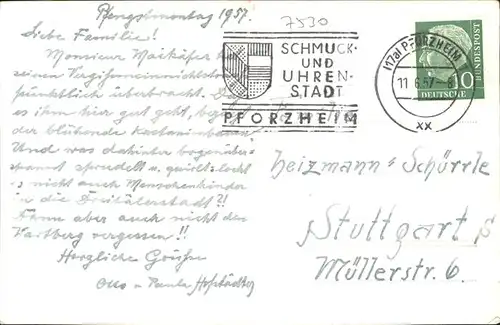 Pfingstmontag 1957.
7530
Liebe Familie!
Monsieur Maikäfer
seinen Vergißmeinnicht
pünktlich überbracht.
es ihm hier gut geht,
der blühende
Und was dahinter
spannt sprudelt u. quirlt, lockt
es nicht auch Menschenkinder
in die
Kann aber auch nicht den
Wartberg vergessen!!
Herzliche Grüße
Otto u. Paula
SCHMUCK-
UND
UHREN-
STADT
PFORZHEIM
(17a) PFORZHEIM
11.6.57
xx
10
DEUTSCHE
BUNDESPOST
Heizmann-Schürrle
Stuttgart S
Müllerstr. 6.